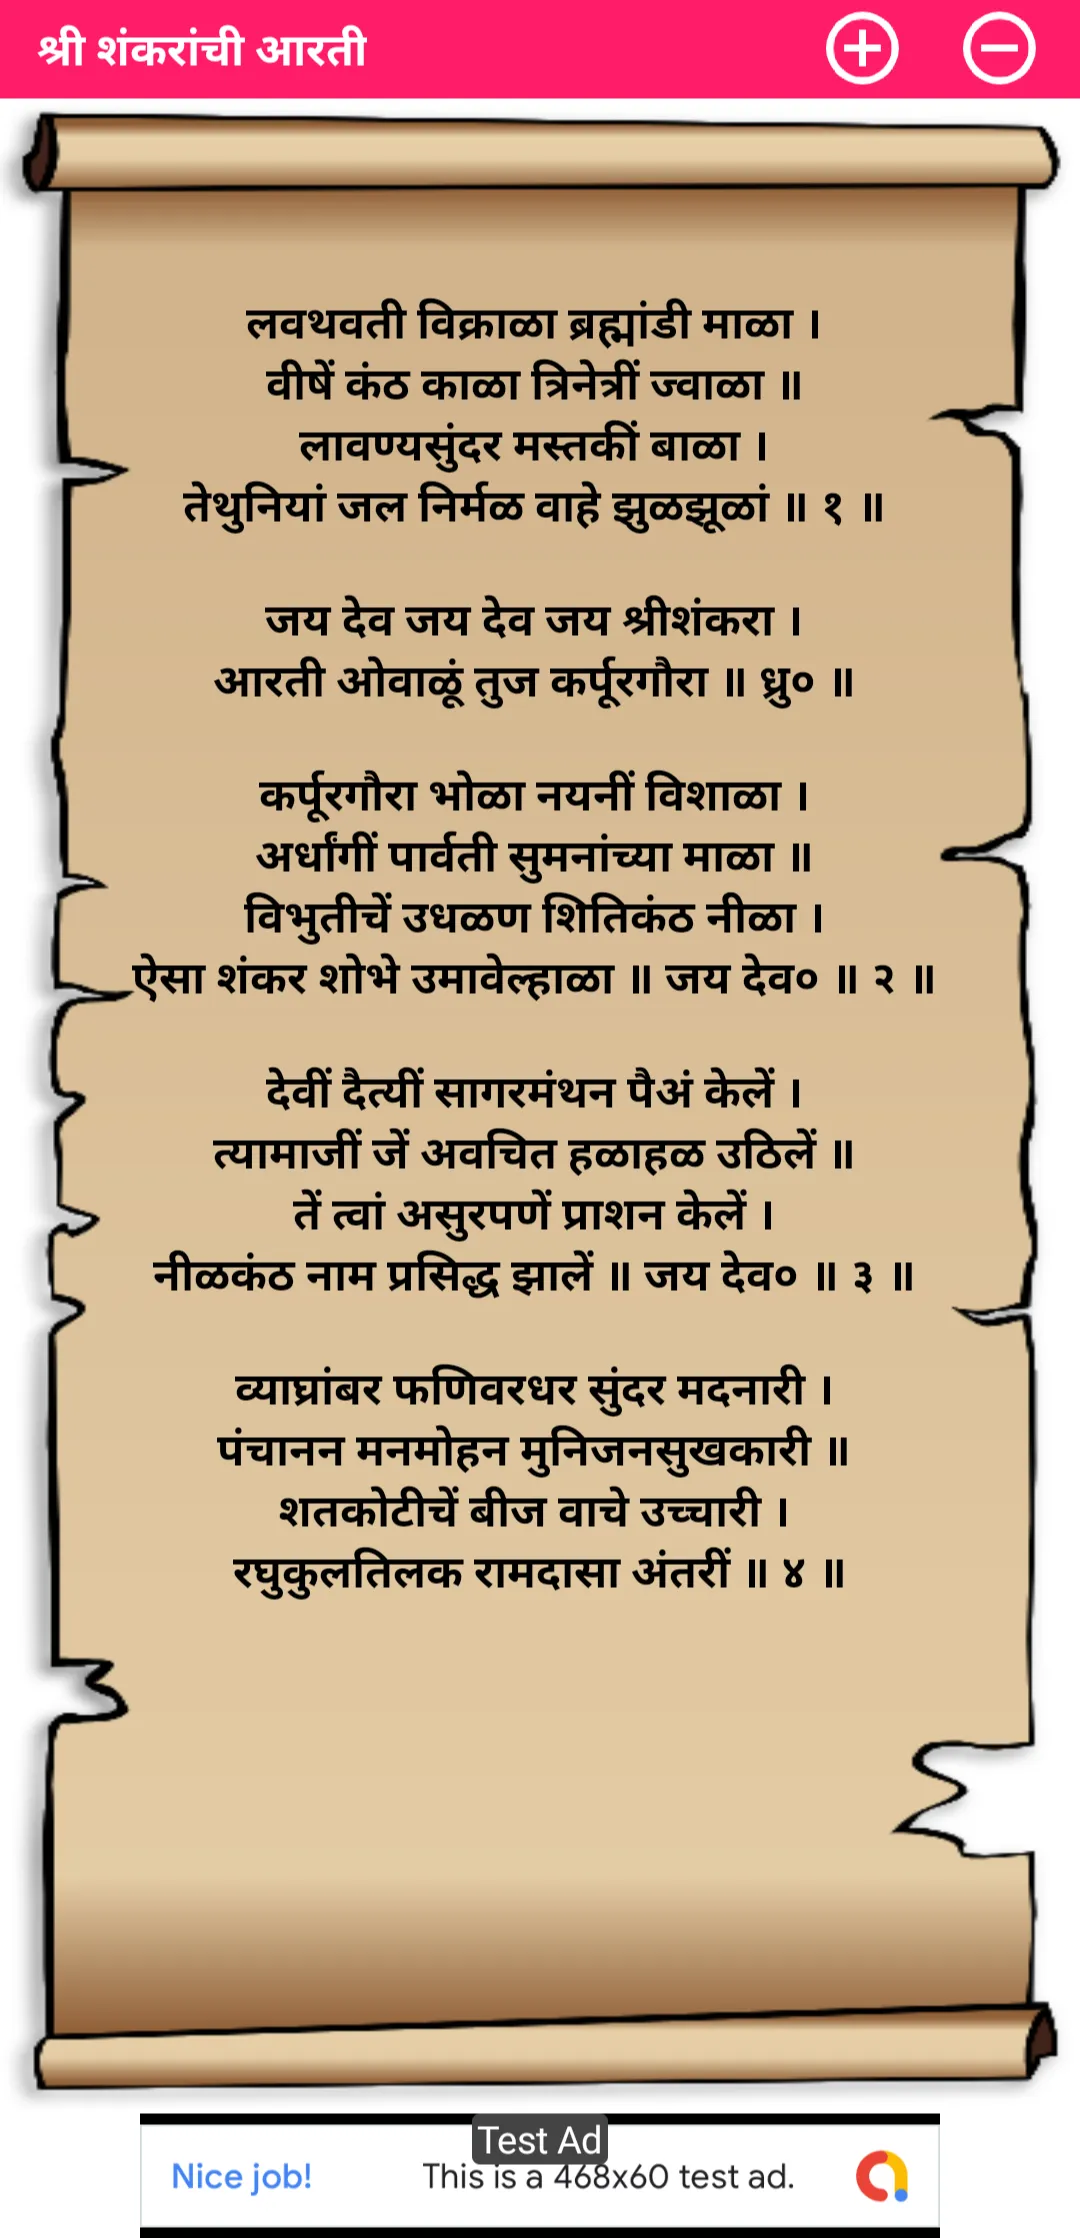 श्री शंकरांची आरती
लवथवती विक्राळा ब्रह्मांडी माळा ।
वीषें कंठ काळा त्रिनेत्रीं ज्वाळा ॥
लावण्यसुंदर मस्तकीं बाळा ।
तेथुनियां जल निर्मळ वाहे झुळझूळां ॥ १ ॥
जय देव जय देव जय श्रीशंकरा ।
आरती ओवाळूं तुज कर्पूरगौरा ॥ ध्रु० ॥
कर्पूरगौरा भोळा नयनीं विशाळा ।
अर्धांगीं पार्वती सुमनांच्या माळा ॥
विभुतीचें उधळण शितिकंठ नीळा ।
ऐसा शंकर शोभे उमावेल्हाळा ॥ जय देव० ॥ २ ॥
देवीं दैत्यीं सागरमंथन पैअं केलें ।
त्यामाजीं जें अवचित हळाहळ उठिलें ॥
तें त्वां असुरपणें प्राशन केलें ।
नीळकंठ नाम प्रसिद्ध झालें ॥ जय देव० ॥ ३ ॥
व्याघ्रांबर फणिवरधर सुंदर मदनारी ।
पंचानन मनमोहन मुनिजनसुखकारी ॥
शतकोटीचें बीज वाचे उच्चारी ।
रघुकुलतिलक रामदासा अंतरीं ॥ ४ ॥
Test Ad
Nice job! This is a 468x60 test ad.